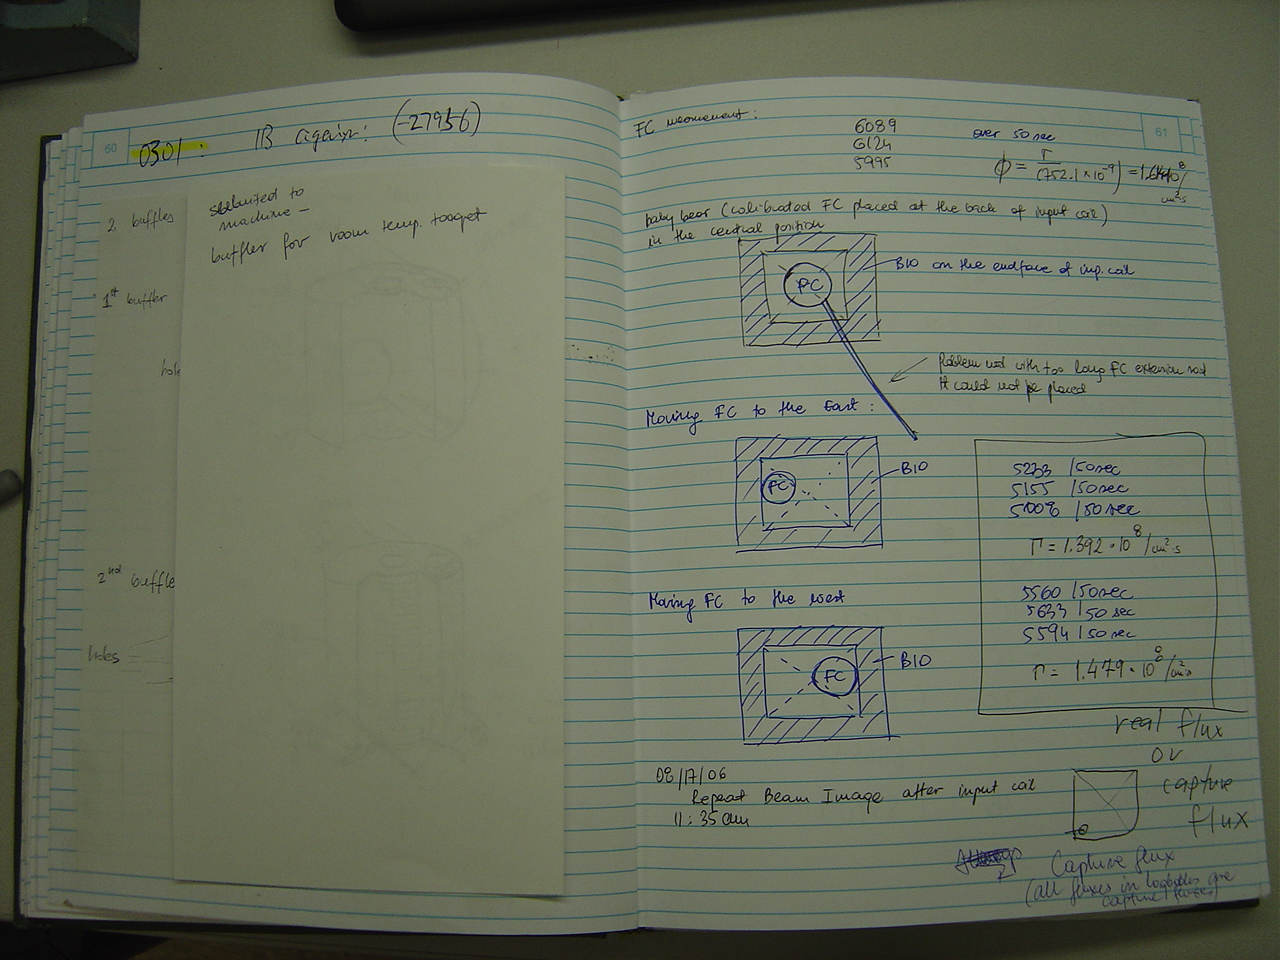 60
0301: IB again: (-27956)
2 buffles
submited to
machine –
buffler for room temp. target
1st buffler
hole
2nd buffle
holes
61
FC mesurement:
6089 over 50 sec
6124
5995
ϕ = Γ / (752.1 × 10^-9)
cm²s
baby bear (calibrated FC placed at the back of input col)
in the central position
FC
B10 on the endface of inp. col
Problem was with too long FC extension rod
It could not be placed
Moving FC to the East:
FC
B10
5233 /50sec
5155 /50sec
/50sec
Γ = 1.392 · 10^8 /cm²·s
Moving FC to the west
FC
B10
5560 /50sec
5633 /50 sec
5594 /50sec
Γ = 1.479 · 10^8 /cm²s
real flux
or
capture
flux
08/17/06
Repeat Beam Image after input col
11:35 am
Capture flux
(all fluxes in logbooks are
capture fluxes)